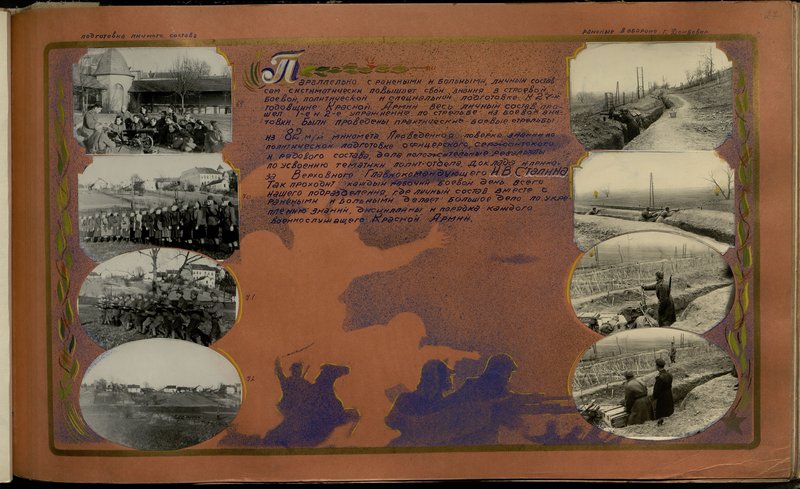 подготовка личного состава
раненые в обороне г. Донбовар
22
Параллельно с ранеными и больными, личный состав
сам систиматически повышает свои знания в строевой,
боевой, политической и специальной подготовке. К 27-ой
годовщине Красной Армии весь личный состав про-
шел 1-е и 2-е упражнения по стрельбе из боевой вин-
товки. Были проведены практические боевые стрельбы
из 82 м/м миномета. Проведенная поверка знаний по
политической подготовке офицерского, сержантского
и рядового состава, дала положительные результаты
по усвоению тематики полит-отдела, доклада и прика-
за Верховного Главнокомандующего И. В. Сталина
Так проходит каждый рабочий боевой день всего
нашего подразделения, где личный состав вместе с
ранеными и больными делает большое дело по укре-
плению знаний, дисциплины и порядка каждого
военнослужащего Красной Армии.
70
71
72